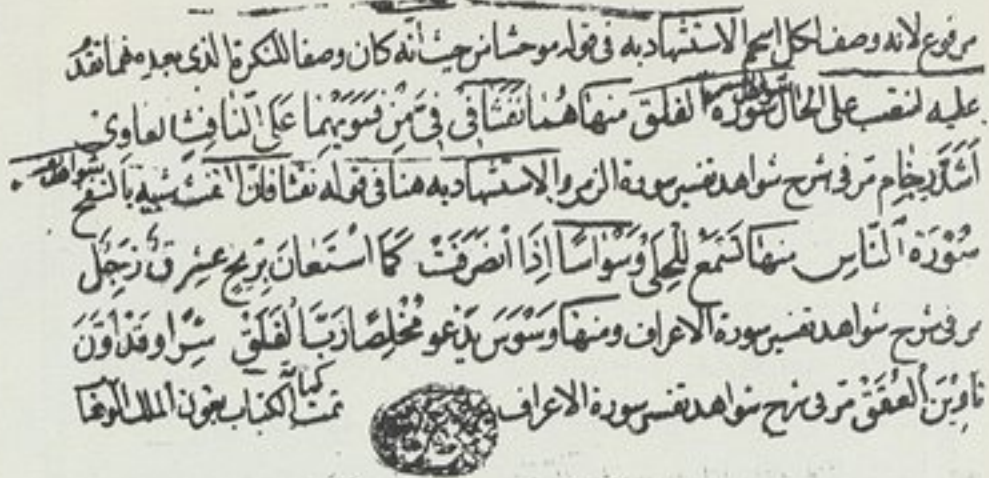 مرفوع لانه وصف لكل اسم الاستشهاد به فى قوله موحشا من حيث أنه كان وصفا للنكرة الذى بعده فما تقدم
عليه انتصب على الحال شواهد سُوْرَة الفلق منها هُمَا نَفَثَا فِي فِيَّ مِنْ فَمَوَيْهِمَا عَلَى النَّافِثِ العاوى
أشد رجام مر فى شرح شواهد تفسير سورة الزمر والاستشهاد به هنا فى قوله نفثا فان النفث شبيه بالنفخ شواهد
سُوْرَة النَّاسِ منها تَسْمَعُ لِلْحَلْىِ وَسْوَاسًا اِذَا انْصَرَفَتْ كَمَا اسْتَعَانَ بِرِيحٍ عِشْرِقٌ زَجِلُ
مر فى شرح شواهد تفسير سورة الاعراف ومنها وَسْوَسَ يَدْعُو مُخْلِصًا رَبَّ الْفَلَقْ سِرًّا وَقَدْ أَوَّنَ
تَأْوِيْنَ الْعُقَقْ مر فى شرح شواهد تفسير سورة الاعراف تمت الكتاب بعون الملك الوهاب